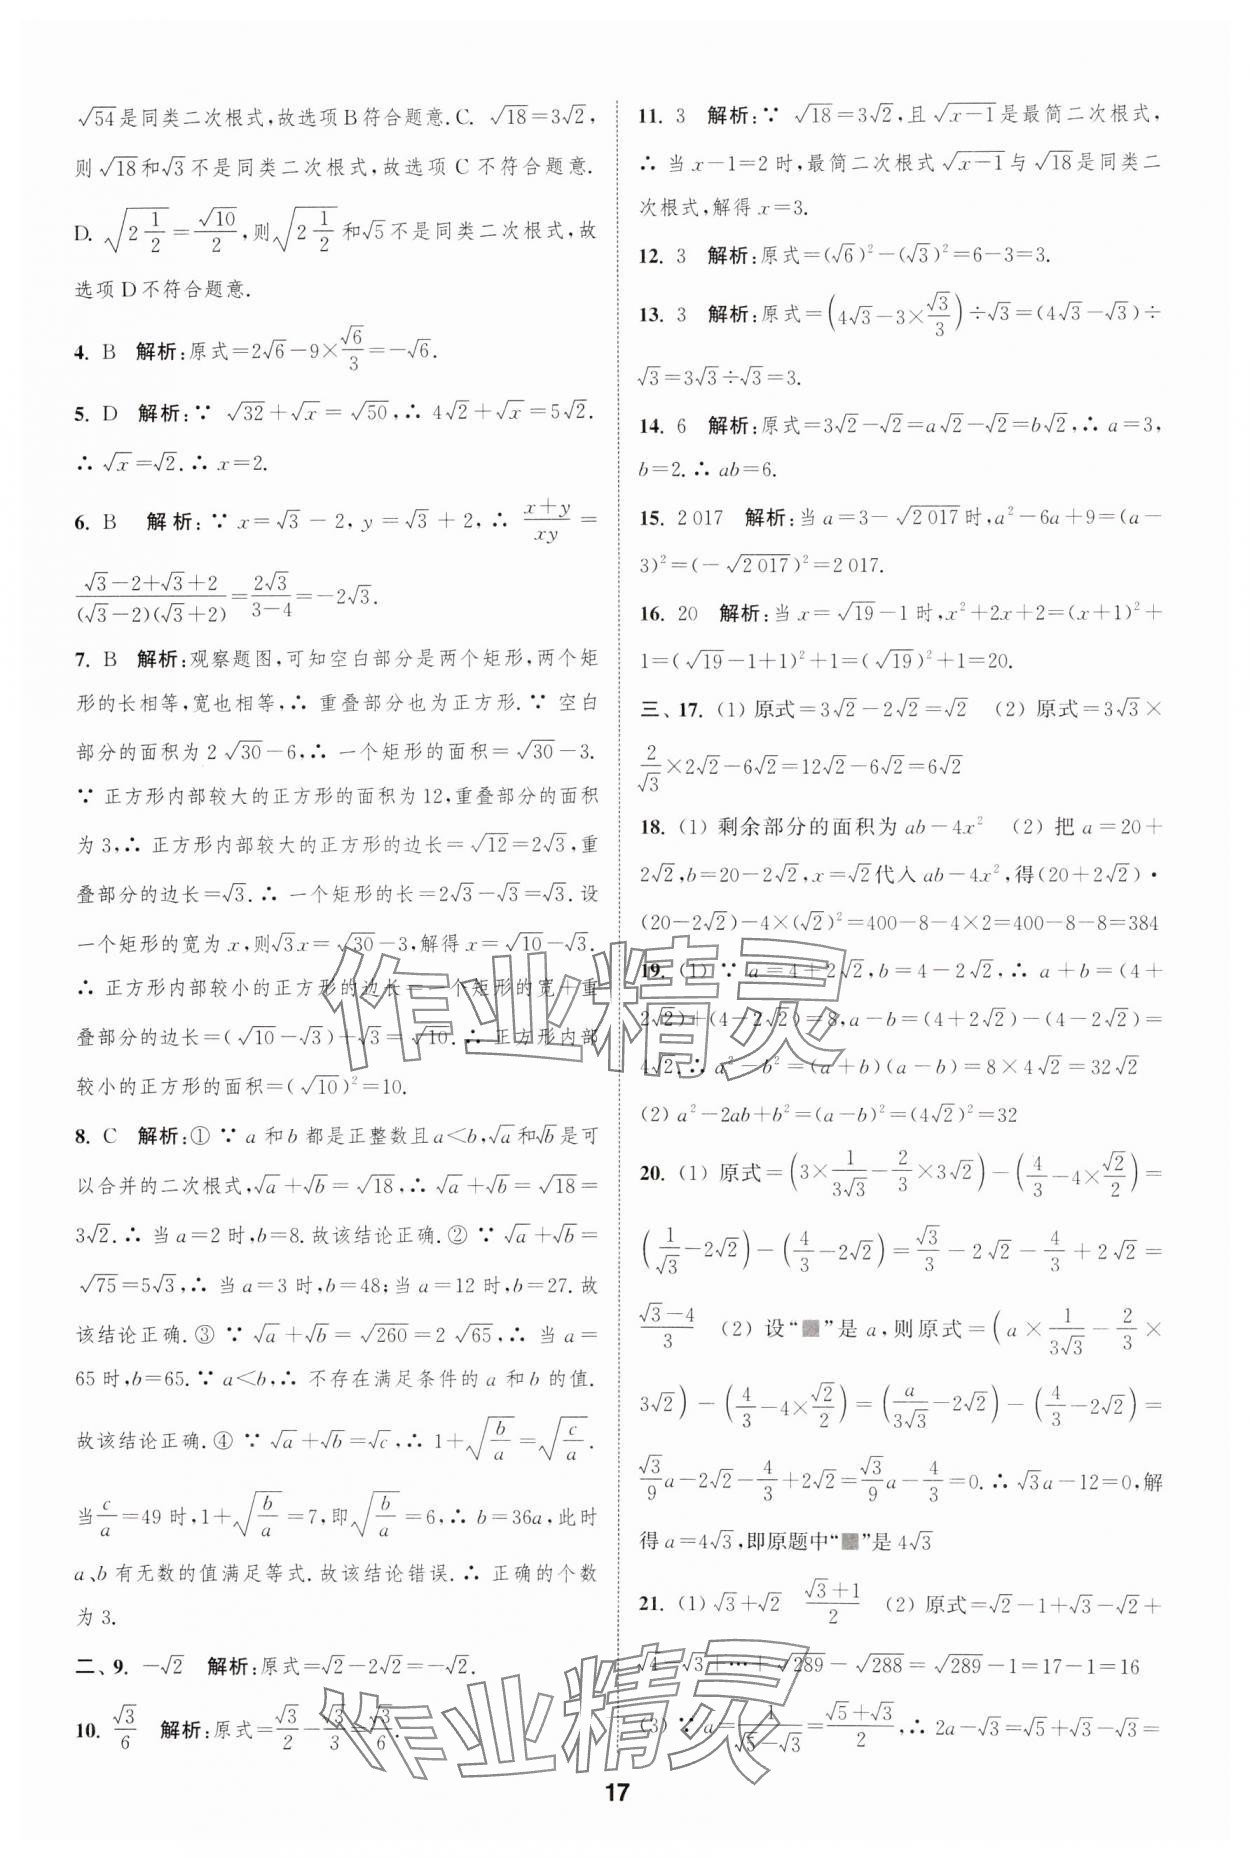 √54是同类二次根式,故选项B符合题意.C. √18=3√2,
则√18和√3不是同类二次根式,故选项C不符合题意.
D. √(2 1/2)=√10/2,则√(2 1/2)和√5不是同类二次根式,故
选项D不符合题意.
4. B 解析:原式=2√6-9×√6/3=-√6.
5. D 解析:∵ √32+√x=√50,∴ 4√2+√x=5√2.
∴ √x=√2.∴ x=2.
6. B 解析:∵ x=√3-2,y=√3+2,∴ (x+y)/(xy)=
(√3-2+√3+2)/((√3-2)(√3+2))=2√3/(3-4)=-2√3.
7. B 解析:观察题图,可知空白部分是两个矩形,两个矩
形的长相等,宽也相等,∴ 重叠部分也为正方形.∵ 空白
部分的面积为2√30-6,∴ 一个矩形的面积=√30-3.
∵ 正方形内部较大的正方形的面积为12,重叠部分的面积
为3,∴ 正方形内部较大的正方形的边长=√12=2√3,重
叠部分的边长=√3.∴ 一个矩形的长=2√3-√3=√3.设
一个矩形的宽为x,则√3x=√30-3,解得x=√10-√3.
∴ 正方形内部较小的正方形的边长=一个矩形的宽+重
叠部分的边长=(√10-√3)+√3=√10.∴ 正方形内部
较小的正方形的面积=(√10)²=10.
8. C 解析:① ∵ a和b都是正整数且a<b,√a和√b是可
以合并的二次根式,√a+√b=√18,∴ √a+√b=√18=
3√2.∴ 当a=2时,b=8.故该结论正确.② ∵ √a+√b=
√75=5√3,∴ 当a=3时,b=48;当a=12时,b=27.故
该结论正确.③ ∵ √a+√b=√260=2√65,∴ 当a=
65时,b=65.∵ a<b,∴ 不存在满足条件的a和b的值.
故该结论正确.④ ∵ √a+√b=√c,∴ 1+√(b/a)=√(c/a).
当c/a=49时,1+√(b/a)=7,即√(b/a)=6,∴ b=36a,此时
a、b有无数的值满足等式.故该结论错误.∴ 正确的个数
为3.
二、9. -√2 解析:原式=√2-2√2=-√2.
10. √3/6 解析:原式=√3/2-√3/3=√3/6.
11. 3 解析:∵ √18=3√2,且√(x-1)是最简二次根式,
∴ 当x-1=2时,最简二次根式√(x-1)与√18是同类二
次根式,解得x=3.
12. 3 解析:原式=(√6)²-(√3)²=6-3=3.
13. 3 解析:原式=(4√3-3×√3/3)÷√3=(4√3-√3)÷
√3=3√3÷√3=3.
14. 6 解析:原式=3√2-√2=a√2-√2=b√2,∴ a=3,
b=2.∴ ab=6.
15. 2 017 解析:当a=3-√(2 017)时,a²-6a+9=(a-
3)²=(-√(2 017))²=2 017.
16. 20 解析:当x=√19-1时,x²+2x+2=(x+1)²+
1=(√19-1+1)²+1=(√19)²+1=20.
三、17. (1) 原式=3√2-2√2=√2 (2) 原式=3√3×
2/√3×2√2-6√2=12√2-6√2=6√2
18. (1) 剩余部分的面积为ab-4x² (2) 把a=20+
2√2,b=20-2√2,x=√2代入ab-4x²,得(20+2√2)·
(20-2√2)-4×(√2)²=400-8-4×2=400-8-8=384
19. (1) ∵ a=4+2√2,b=4-2√2,∴ a+b=(4+
2√2)+(4-2√2)=8,a-b=(4+2√2)-(4-2√2)=
4√2.∴ a²-b²=(a+b)(a-b)=8×4√2=32√2
(2) a²-2ab+b²=(a-b)²=(4√2)²=32
20. (1) 原式=(3×1/(3√3)-2/3×3√2)-(4/3-4×√2/2)=
(1/√3-2√2)-(4/3-2√2)=√3/3-2√2-4/3+2√2=
(√3-4)/3 (2) 设“■”是a,则原式=(a×1/(3√3)-2/3×
3√2)-(4/3-4×√2/2)=(a/(3√3)-2√2)-(4/3-2√2)=
√3/9a-2√2-4/3+2√2=√3/9a-4/3=0.∴ √3a-12=0,解
得a=4√3,即原题中“■”是4√3
21. (1) √3+√2 (√3+1)/2 (2) 原式=√2-1+√3-√2+
√4-√3+…+√289-√288=√289-1=17-1=16
(3) ∵ a=1/(√5-√3)=(√5+√3)/2,∴ 2a-√3=√5+√3-√3=
作业精灵
作业精灵
17